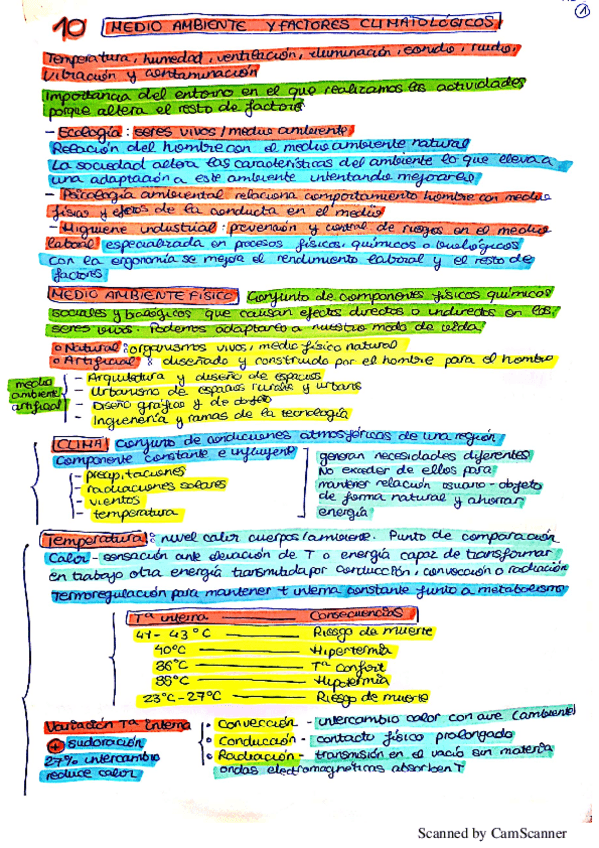 ①
10 MEDIO AMBIENTE Y FACTORES CLIMATOLÓGICOS
Temperatura, humedad, ventilación, iluminación, sonido, ruido,
vibración y contaminación
Importancia del entorno en el que realizamos las actividades
porque altera el resto de factores
- Ecología: seres vivos / medio ambiente
Relación del hombre con el medio ambiente natural
La sociedad altera las características del ambiente lo que eleva a
una adaptación a este ambiente intentando mejorarlo
- Psicología ambiental relaciona comportamiento hombre con medio
físico y efectos de la conducta en el medio
- Higuiene industrial: prevención y control de riesgos en el medio
laboral especializada en procesos físicos, químicos o biológicos
Con la ergonomía se mejora el rendimiento laboral y el resto de
factores
MEDIO AMBIENTE FÍSICO Conjunto de componentes físicos químicos
sociales y biológicos que causan efectos directos o indirectos en los
seres vivos. Podemos adaptarlo a nuestro modo de vida
o Natural: organismos vivos, medio físico natural
o Artificial: diseñado y construido por el hombre para el hombre
medio
ambiente
artificial
- Arquitectura y diseño de espacios
- Urbanismo de espacios rurales y urbanos
- Diseño gráfico y de objeto
- Ingeniería y ramas de la tecnología
CLIMA Conjunto de condiciones atmosféricas de una región
Componente constante e influyente
- precipitaciones
- radiaciones solares
- vientos
- temperatura
generan necesidades diferentes
No exceder de ellos para
mantener relación usuario-objeto
de forma natural y ahorrar
energía
Temperatura: nivel calor cuerpos/ambiente. Punto de comparación
Calor - sensación ante elevación de T o energía capaz de transformar
en trabajo otra energía transmitida por conducción, convección o radiación
Termoregulación para mantener t interna constante junto a metabolismo
Tª interna — Consecuencias
41 - 43ºC — Riesgo de muerte
40ºC — Hipertermia
36ºC — Tª confort
35ºC — Hipotermia
23ºC - 27ºC — Riesgo de muerte
Variación Tª Interna
+ sudoración
27% intercambio
reduce calor
• Convección - intercambio calor con aire (ambiente)
• Conducción - contacto físico prolongado
• Radiación - transmisión en el vacío sin materia
ondas electromagnéticas absorben T
Scanned by CamScanner